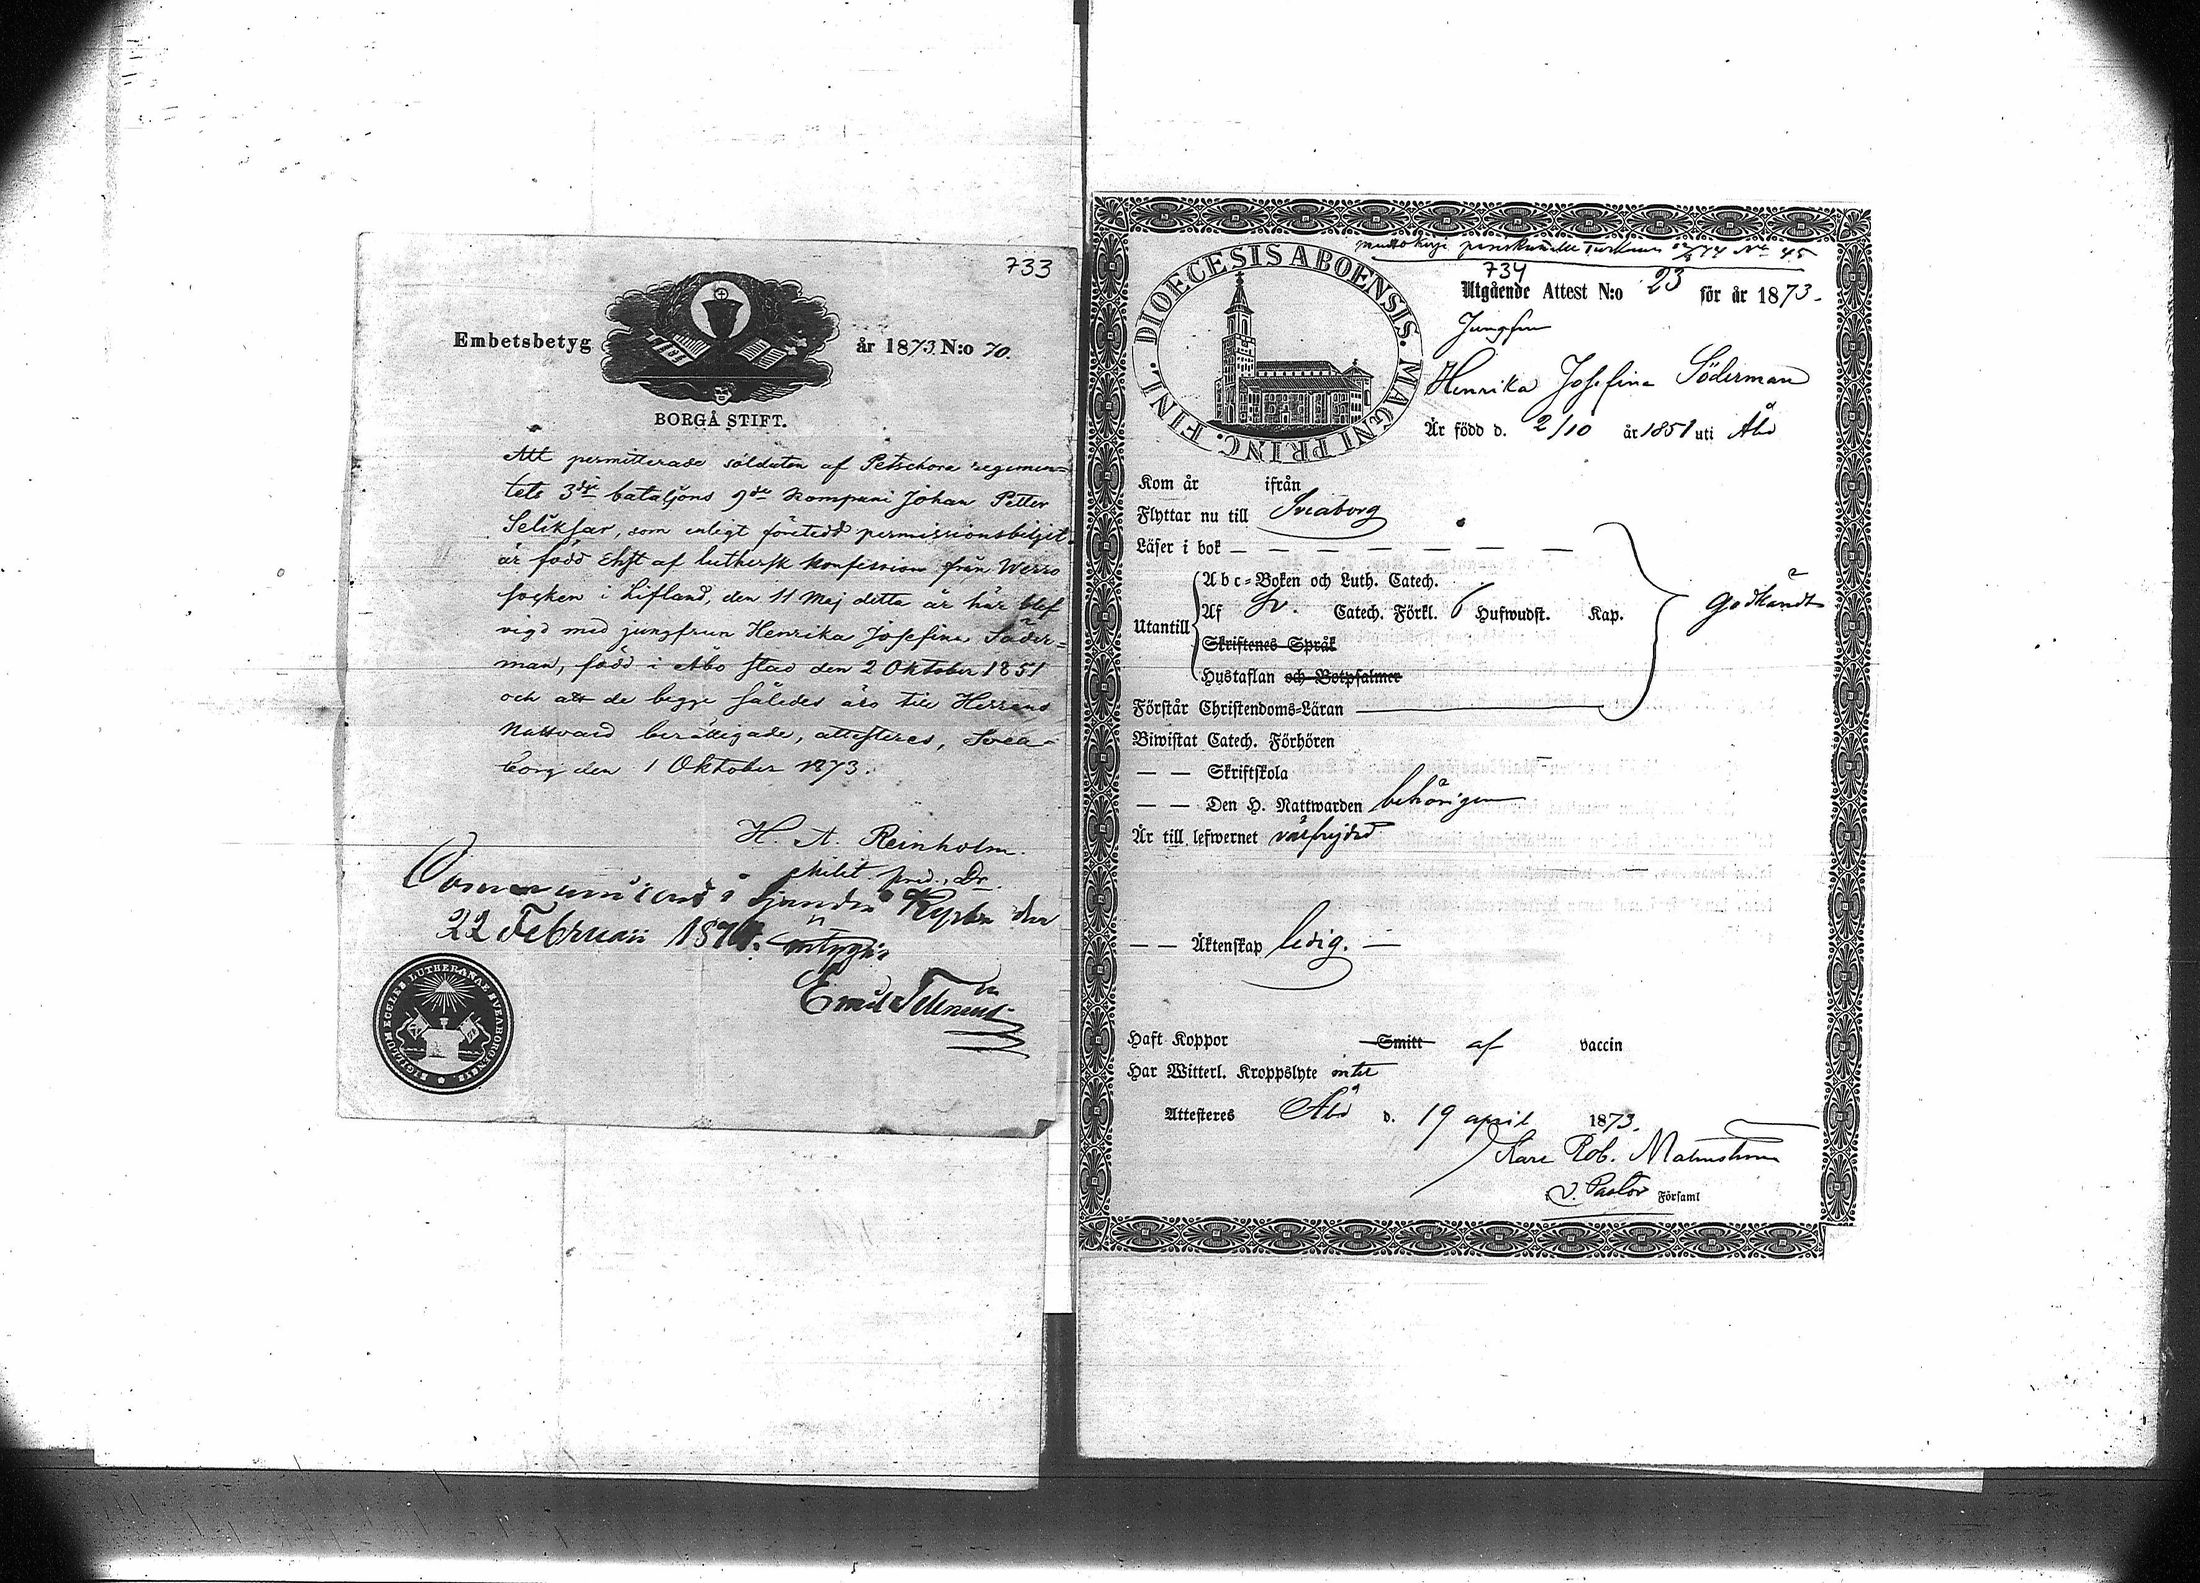 733
Embetsbetyg år 1873 N:o 70.
BORGÅ STIFT.
Att permitterade soldaten af Petschora regemen=
tets 3dje bataljons 9de kompani Johan Petter
Seliksar, som enligt företedd permissionsbiljet
är född Ehst af luthersk konfession från Werro
socken i Lifland, den 11 Maj detta år här blef
vigd med jungfrun Henrika Josefina Söder=
man, född i Åbo stad den 2 Oktober 1851
och att de begge således äro till Herrans
Nattvard berättigade, attesteres, Svea-
borg den 1 Oktober 1873.
H. A. Reinholm.
Milit. pred., Dr.
Communicerat i Kyrka den
22 Februari intygar
Emil
SIGILLUM ECCLES. LUTHERANAE SVEABORGENSIS
muuttokirja Turkuun No 45
734
Utgående Attest N:o 23 för år 1873.
DIOECESIS ABOENSIS. MAGNI PRINC. FINL.
Jungfru
Henrika Josefina Söderman
Är född d. 2/10 år 1851 uti Åbo
Kom år ifrån
Flyttar nu till Sveaborg
Läser i bok — — — — — — —
Utantill
Abc=Boken och Luth. Catech.
Af Sv. Catech. Förkl. 6 Hufwudst. Kap.
Skriftenes Språk
Hustaflan och Botpsalmer
godkändt
Förstår Christendoms=Läran
Biwistat Catech. Förhören
— — Skriftskola —
— — Den H. Nattwarden behörigen
Är till lefwernet välfrejdad
— — Äktenskap ledig. —
Haft Koppor Smitt af vaccin
Har Witterl. Kroppslyte intet
Attesteres Åbo d. 19 april 1873.
Karl Rob. Malmström
v. Pastor i Församl